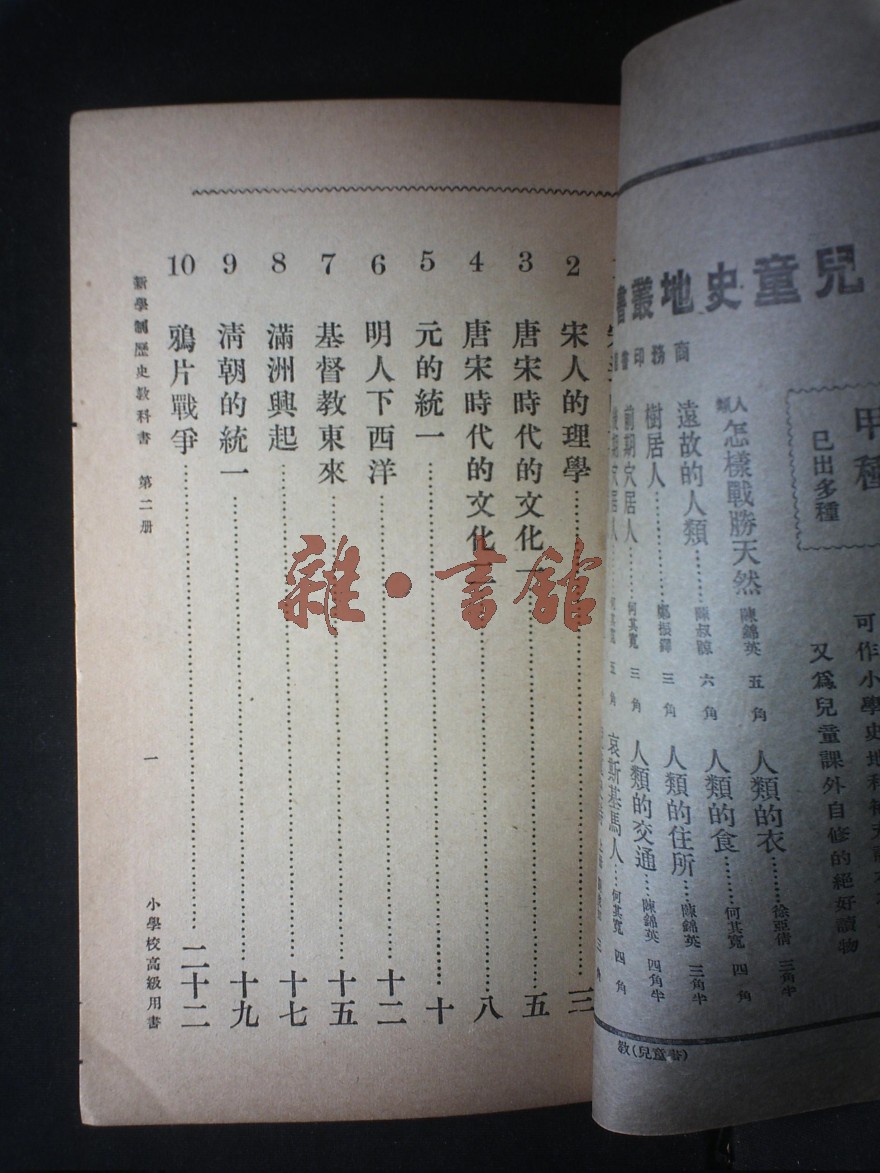 兒童史地叢書
商務印書
甲種
已出多種
可作小學史地科補充讀本
又為兒童課外自修的絕好讀物
人類怎樣戰勝天然 陳錦英 五角
遠故的人類……陳叔諒 六角
樹居人……鄭振鐸 三角
前期穴居人……何其寬 三角
後期穴居人……何其寬 五角
人類的衣……徐亞倩 三角半
人類的食……何其寬 四角
人類的住所……陳錦英 三角半
人類的交通……陳錦英 四角半
哀斯基馬人……何其寬 四角
教(兒童書)
2 宋人的理學……三
3 唐宋時代的文化一……五
4 唐宋時代的文化二……八
5 元的統一……十
6 明人下西洋……十二
7 基督教東來……十五
8 滿洲興起……十七
9 淸朝的統一……十九
10 鴉片戰爭……二十二
新學制歷史教科書 第二册 一 小學校高級用書
雜·書館